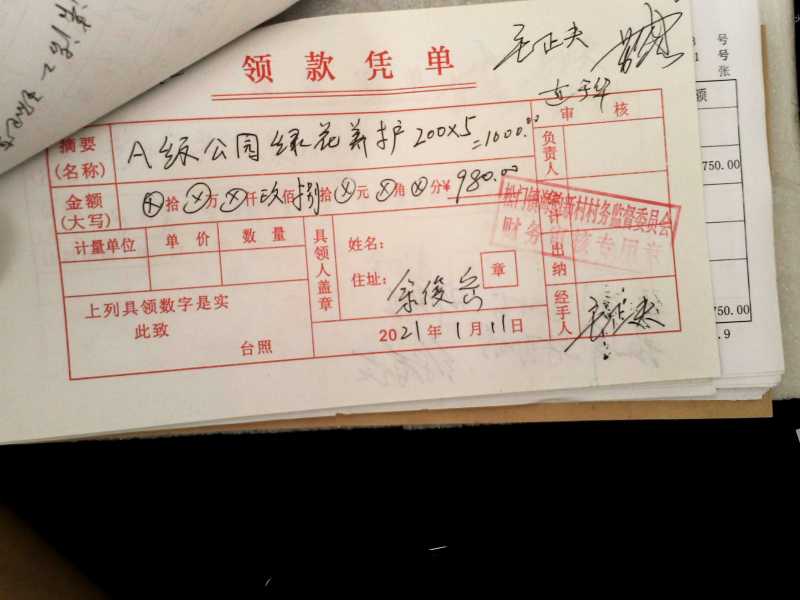 领款凭单
毛正夫
审 核
摘要
(名称)
A级公园绿花养护200×5
=1000.00
负责人
金额
(大写)
⊗拾⊗万⊗仟玖佰捌拾⊗元⊗角⊗分¥980.00
计量单位 单价 数量
具领人盖章
姓名：
住址：
余俊岳
章
出纳
村务监督委员会
财务 专用章
上列具领数字是实
此致
台照
2021年1月11日
经手人
毛正夫
号
号
张
额
750.00
750.00
.9